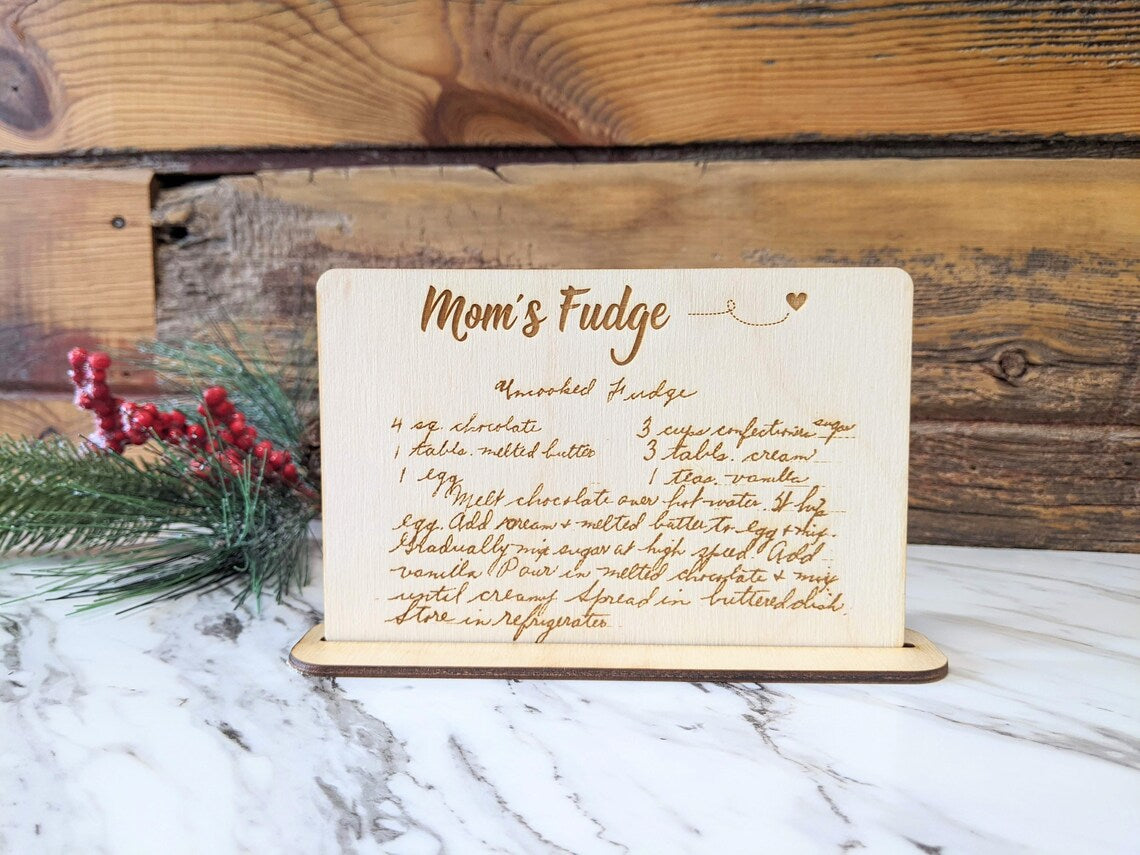 Mom's Fudge
Uncooked Fudge
4 sq. chocolate 3 cups confectioners sugar
1 tabls. melted butter 3 tabls. cream
1 egg 1 teas. vanilla
Melt chocolate over hot water. Whip
egg. Add cream + melted butter to egg + mix.
Gradually mix sugar at high speed. Add
vanilla Pour in melted chocolate + mix
until creamy Spread in buttered dish
Store in refrigerator